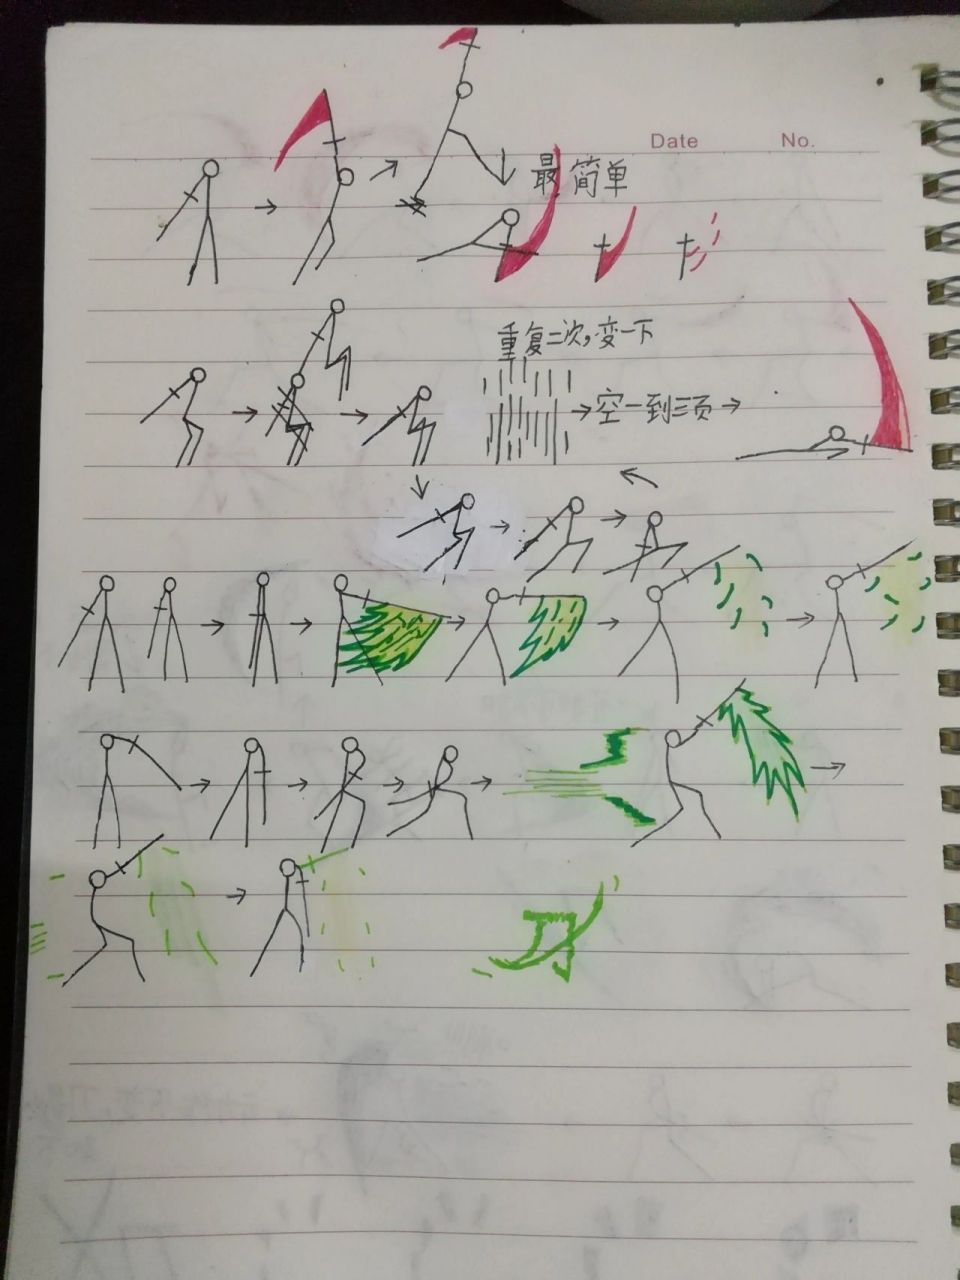 Date No.
最简单
重复二次,变一下
空一到三页
刀